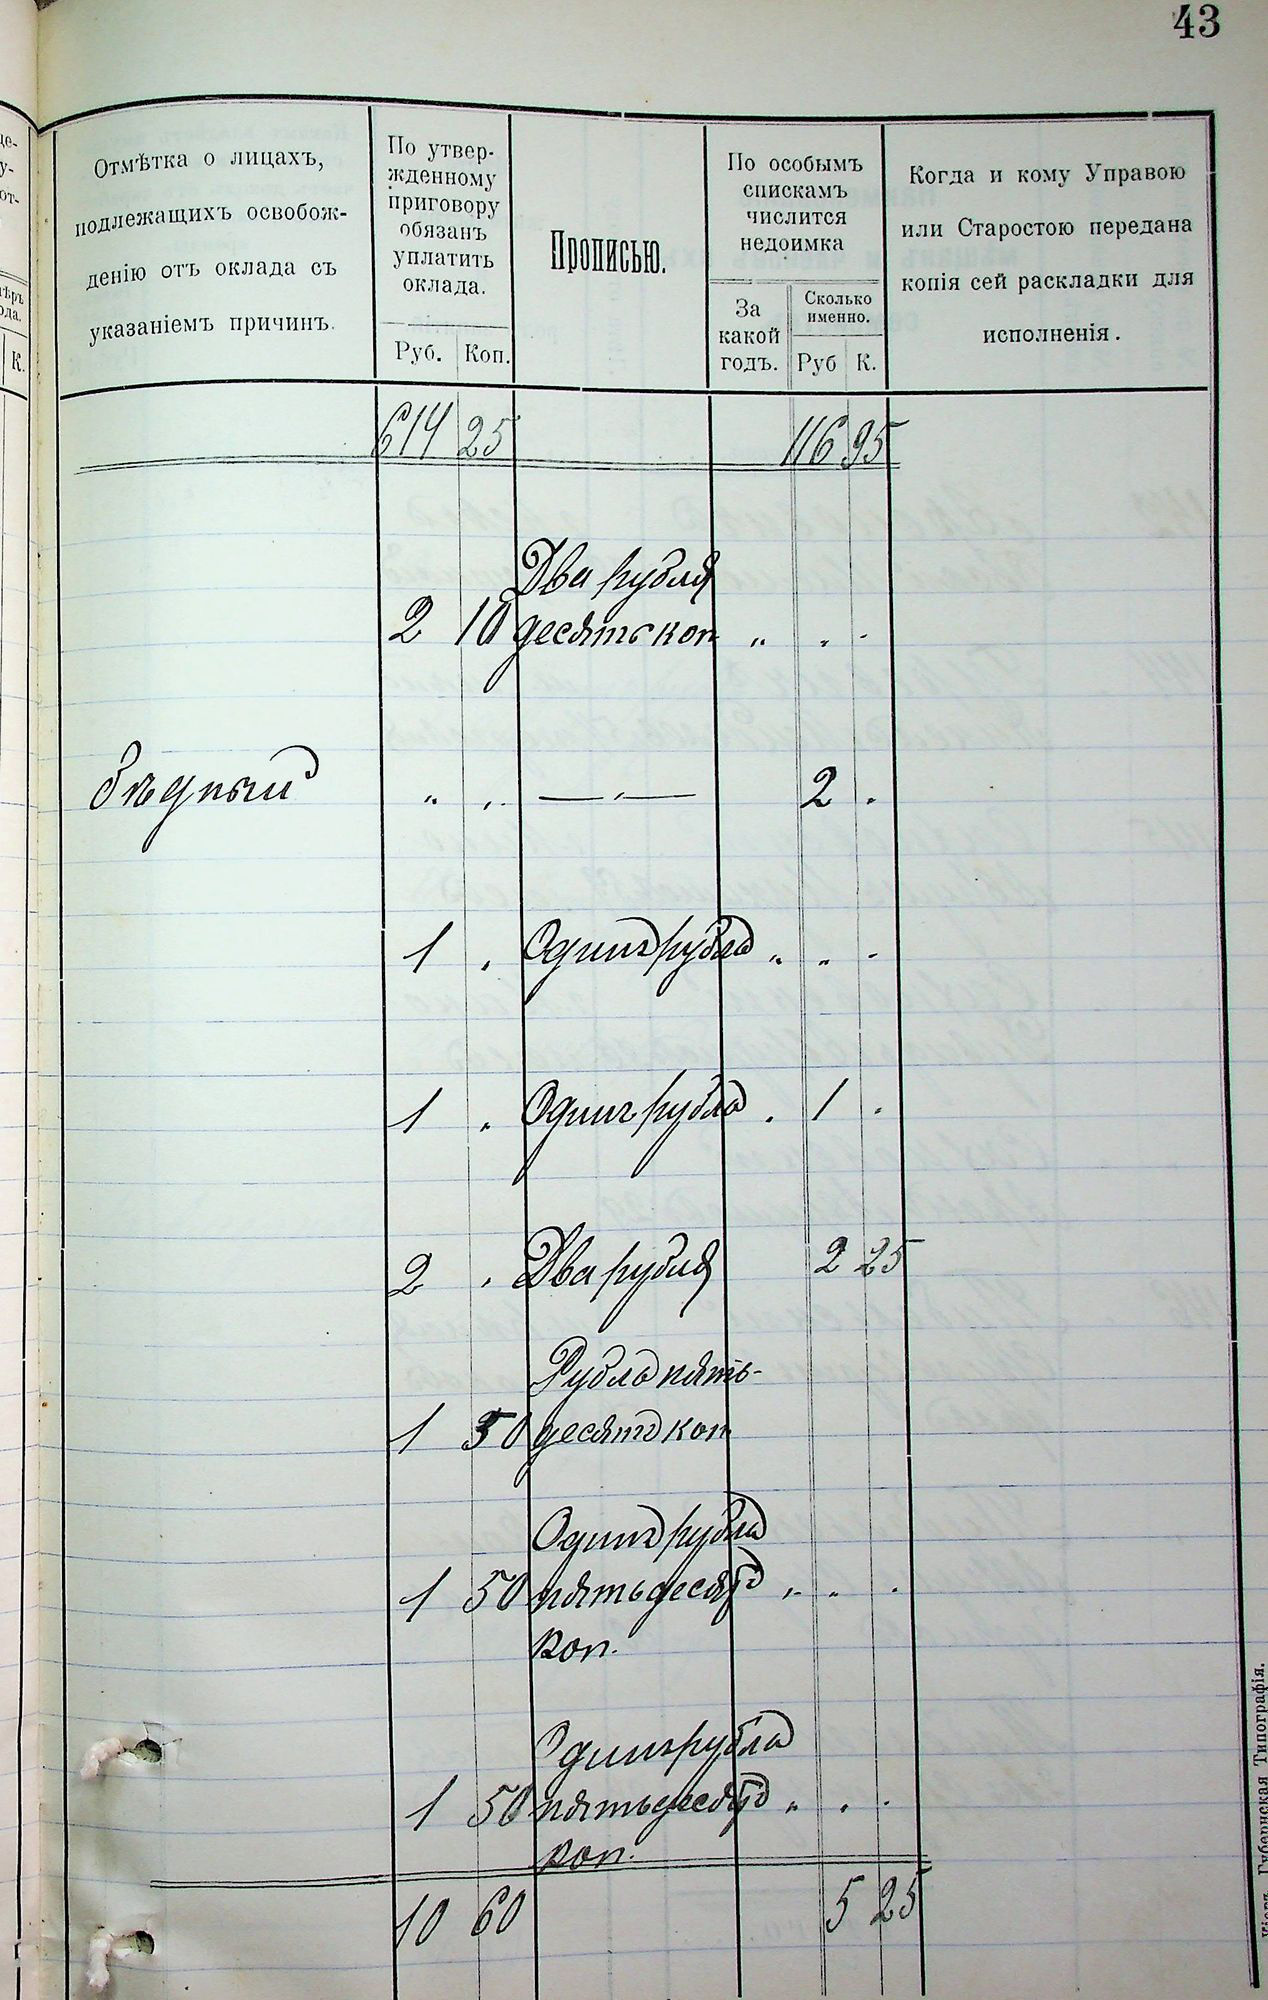 43
Отмѣтка о лицахъ,
подлежащихъ освобож-
денію отъ оклада съ
указаніемъ причинъ.
По утвер-
жденному
приговору
обязанъ
уплатить
оклада.
Руб. Коп.
Прописью.
По особымъ
спискамъ
числится
недоимка
За
какой
годъ.
Сколько
именно.
Руб К.
Когда и кому Управою
или Старостою передана
копія сей раскладки для
исполненія.
К.
614 25 116 95
Два рубля
2 10 десять коп " " "
Бѣдный " " — " — 2 "
1 " Одинъ рубль " " "
1 " Одинъ рубль " 1 "
2 " Два рубля 2 25
Рубль пять-
1 50 десятъ коп
Одинъ рубль
1 50 пятьдесятъ " " "
коп.
Одинъ рубль
1 50 пятьдесятъ " " "
коп.
10 60 5 25
Губернская Типографія.